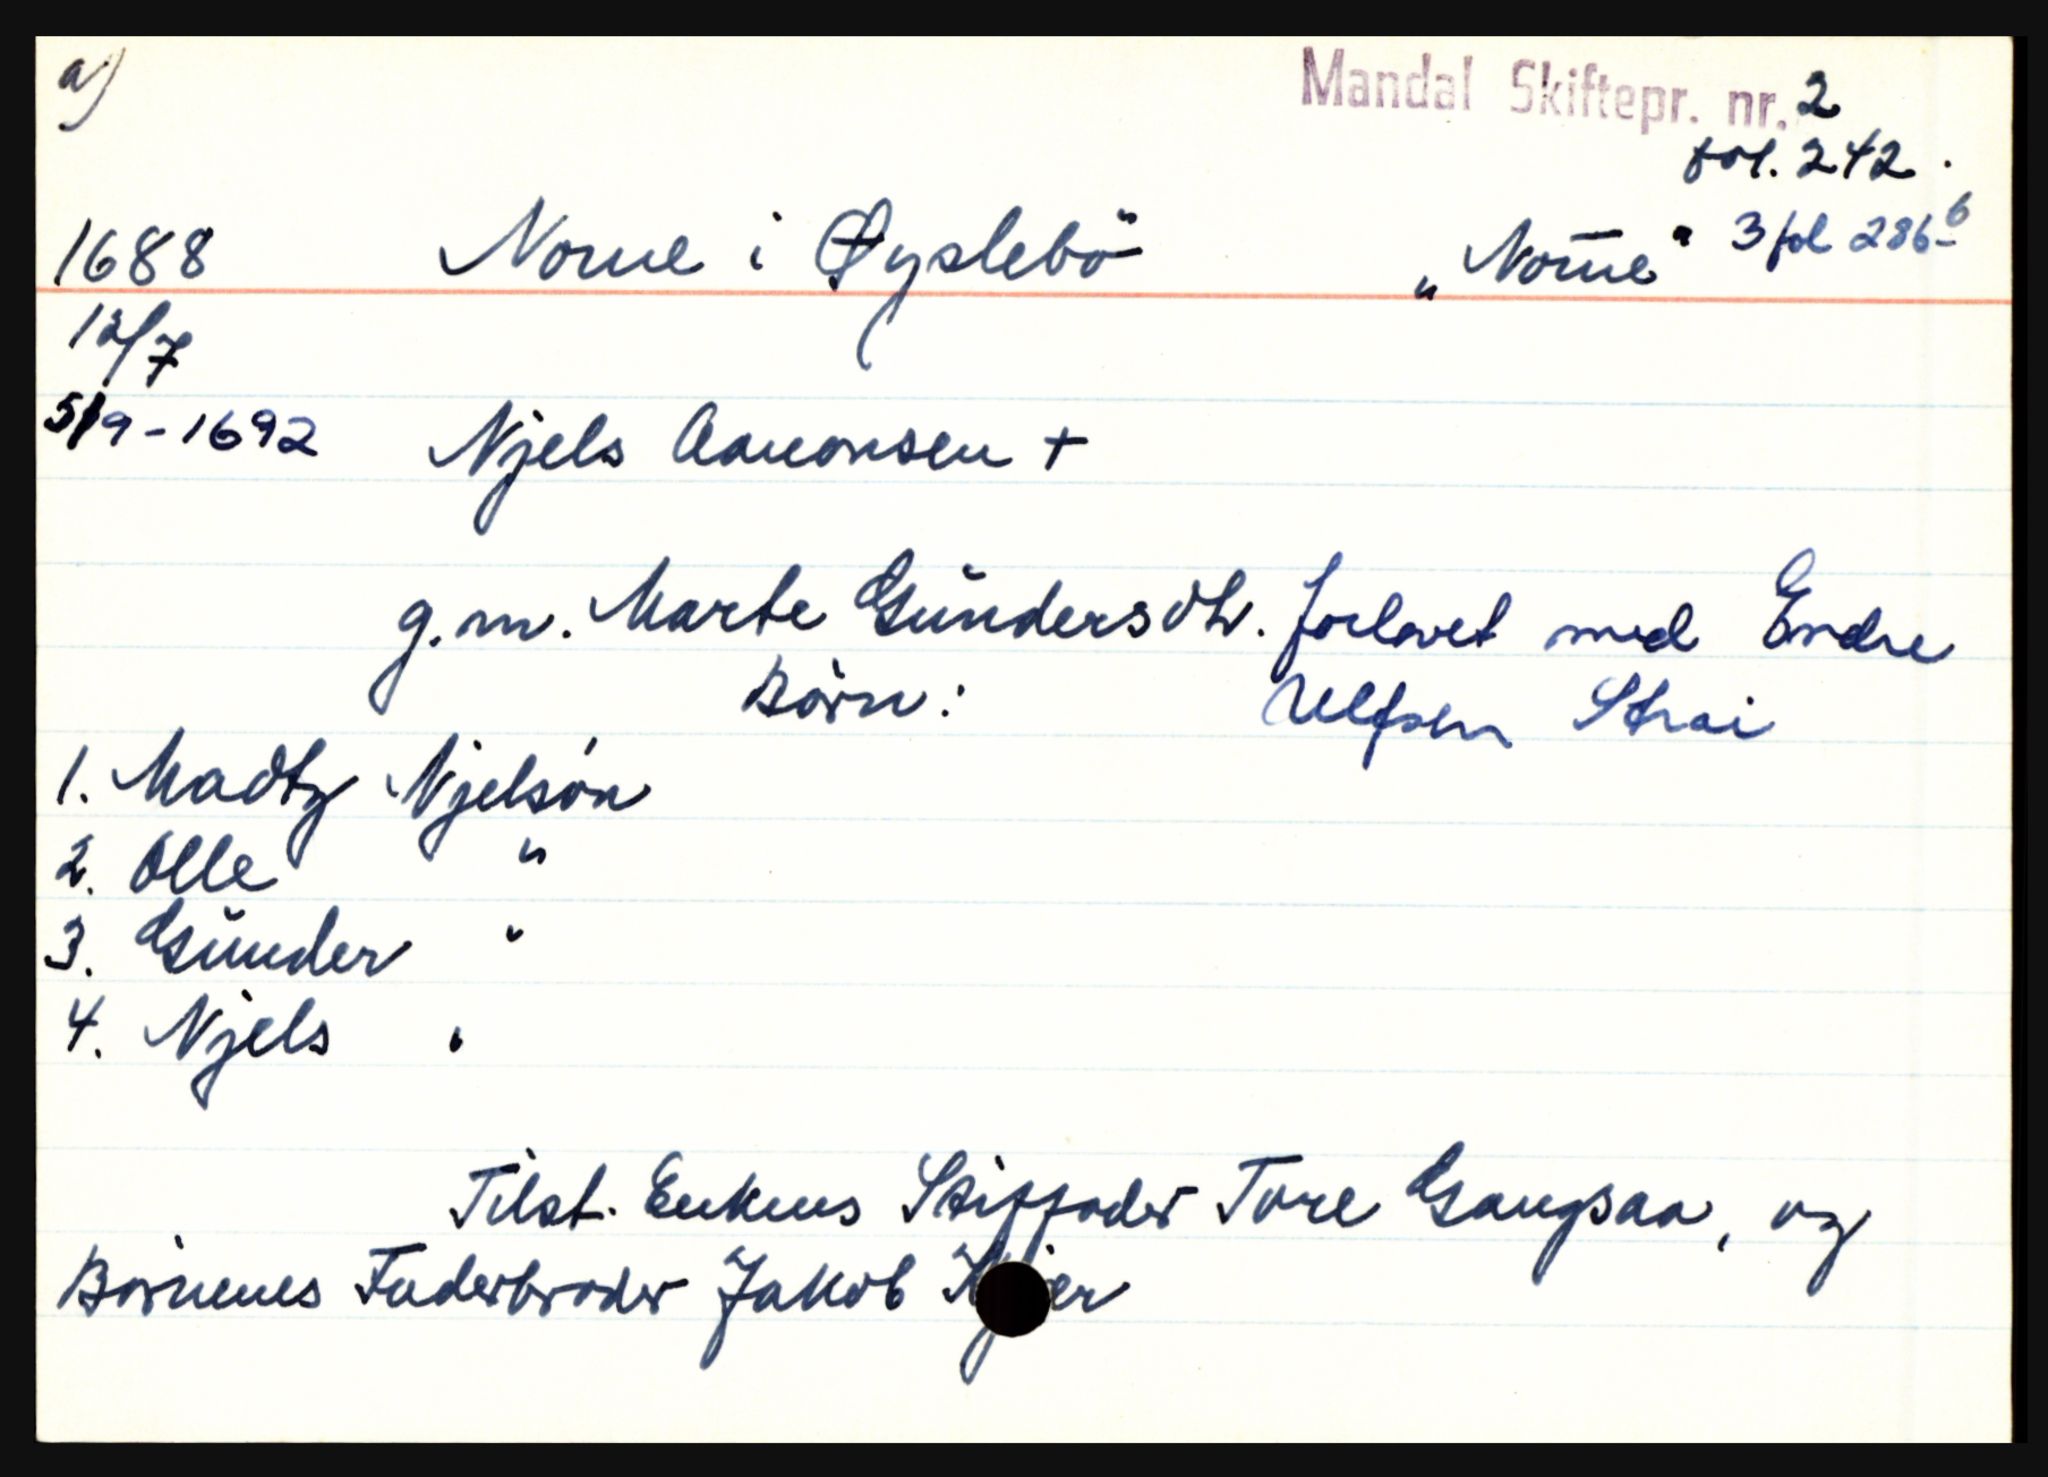 a)
Mandal Skiftepr. nr. 2
fol. 242.
1688 Nome i Øyslebö „Nom̅e" 3 fol 286b
12/7
5/9-1692 Njels Aanonsen +
g.m. Marte Gŭndersdtr. forlovet med Endre
Børn: Ulfsen Strai
1. Madtz Njelsøn
2. Olle "
3. Gŭnder "
4. Njels "
Tilst. Enkens Stiffader Tore Gangsaa, og
Børnenes Faderbroder Jakob Kjær